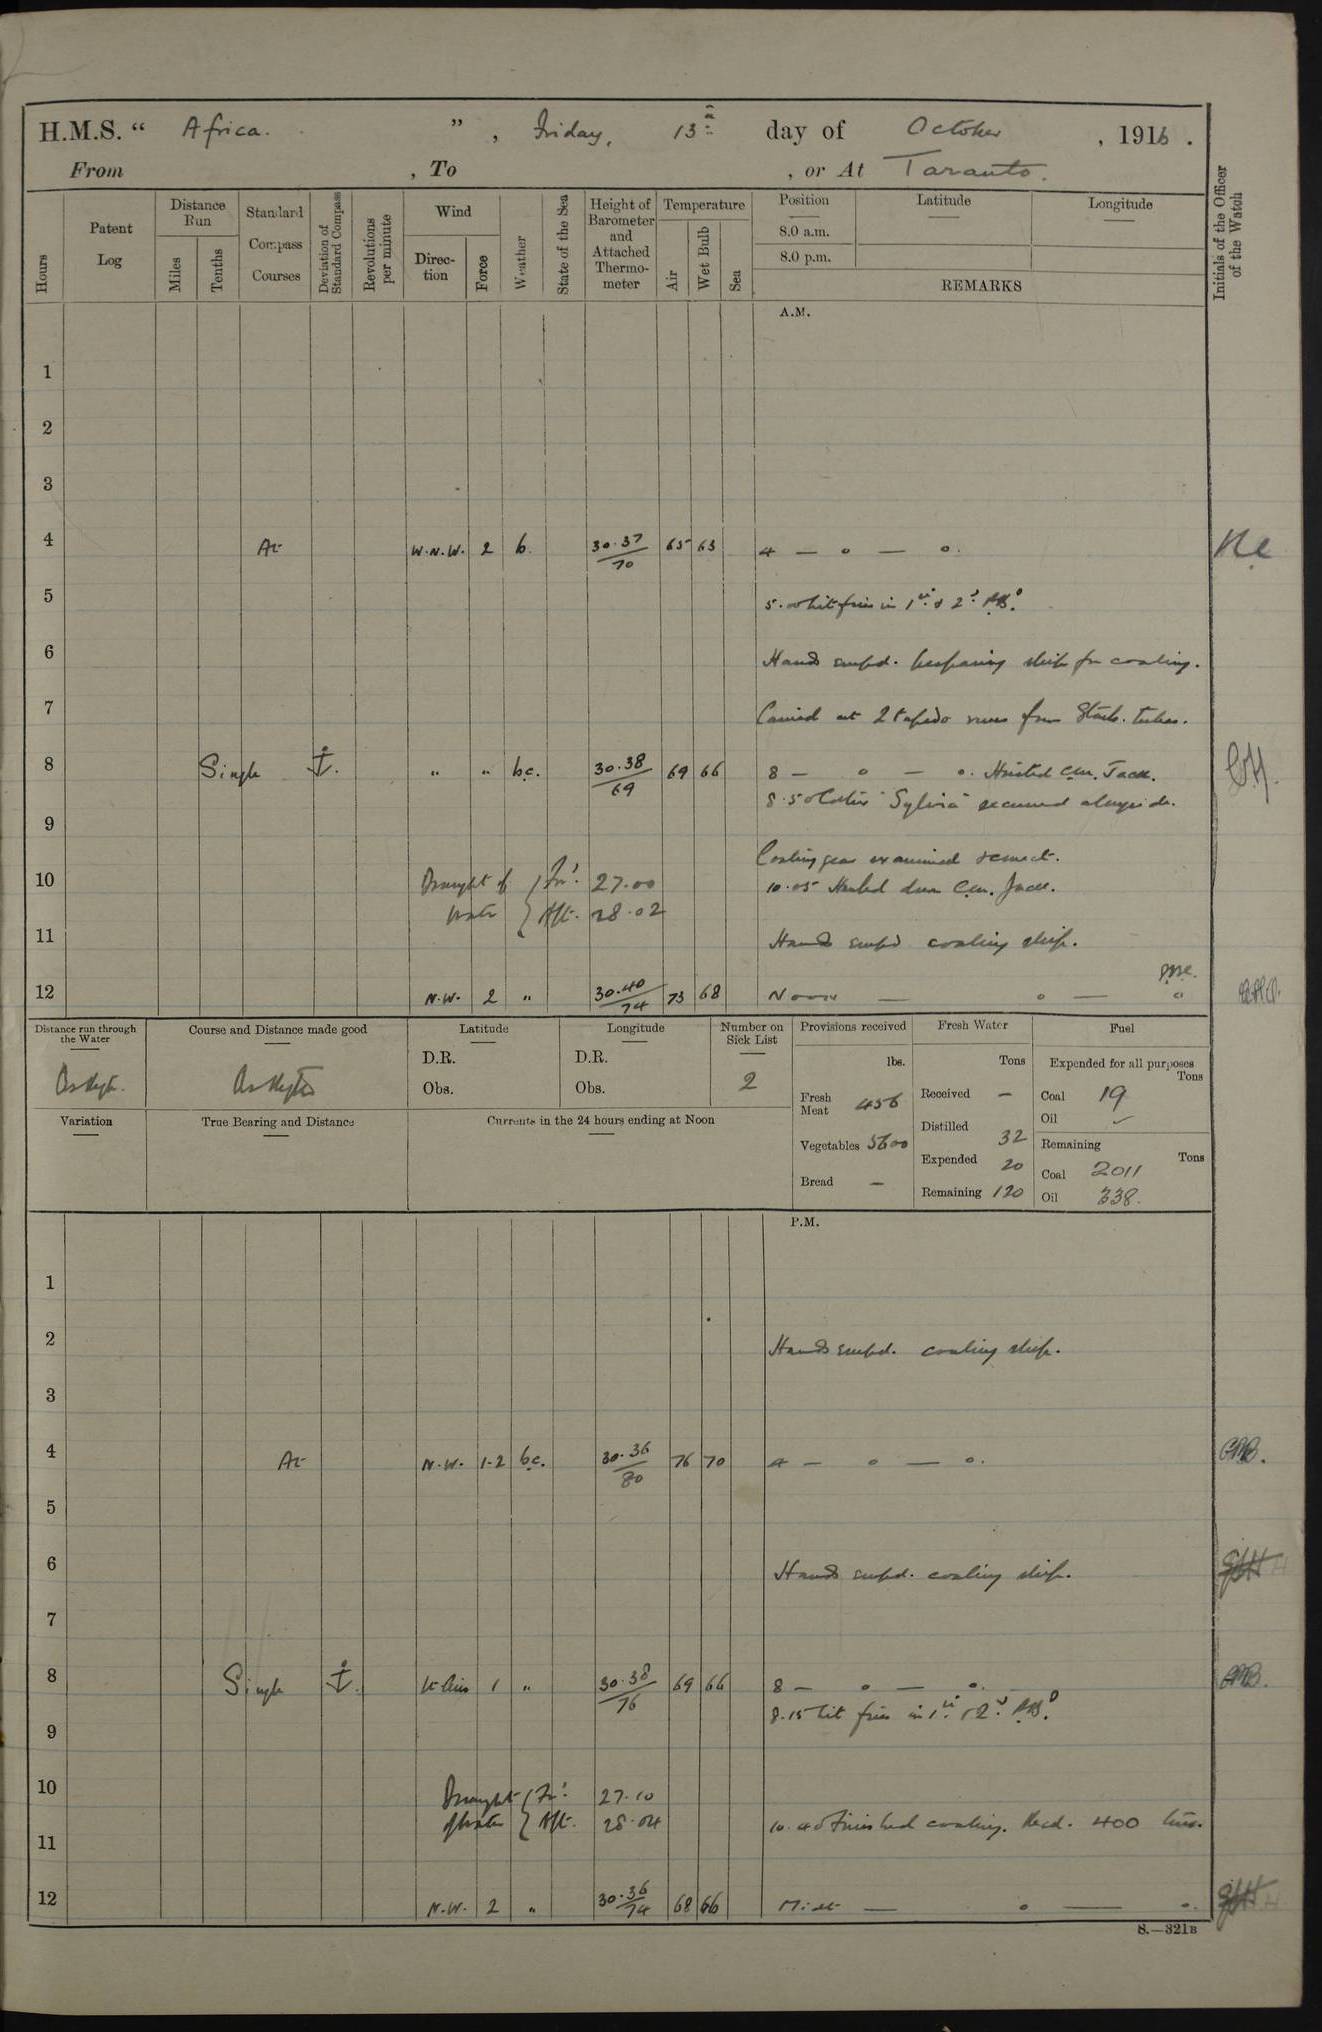 H.M.S. “ Africa. ” , Friday, 13th day of October , 1916 .
From , To , or At Taranto.
Hours
Patent Log
Distance Run
Miles
Tenths
Standard Compass Courses
Deviation of Standard Compass
Revolutions per minute
Wind
Direction
Force
Weather
State of the Sea
Height of Barometer and Attached Thermometer
Temperature
Air
Wet Bulb
Sea
Position
8.0 a.m.
8.0 p.m.
Latitude
Longitude
REMARKS
Initials of the Officer of the Watch
A.M.
1
2
3
4 At W.N.W. 2 b. 30.37/70 65 63 4 — o — o.
5 5.00 lit fires in 1st & 2nd P.B.º
6 Hands empd. preparing ship for coaling.
7 Carried out 2 torpedo runs from Starb. tubes.
8 Single ⚓. " " b.c. 30.38/69 69 66 8 — o — o. Hoisted Jack.
8.50 Collier "Sylvia" secured alongside.
9
Coaling gear examined & correct.
10 Draught of For'd 27.00 10.05 Hauled down Jack.
water Aft. 28.02
11 Hands empd coaling ship.
12 N.W. 2 " 30.40/74 73 68 Noon — o — o
Distance run through the Water
Course and Distance made good
Latitude
D.R.
Obs.
Longitude
D.R.
Obs.
Number on Sick List
2
Provisions received
lbs.
Fresh Meat 456
Vegetables 5600
Bread —
Fresh Water
Tons
Received —
Distilled 32
Expended 20
Remaining 120
Fuel
Expended for all purposes
Tons
Coal 19
Oil ✓
Remaining
Tons
Coal 2011
Oil 338.
Variation
True Bearing and Distance
Currents in the 24 hours ending at Noon
P.M.
1
2 Hands empd. coaling ship.
3
4 At N.W. 1-2 b.c. 30.36/80 76 70 4 — o — o.
5
6 Hands empd. coaling ship.
7
8 Single ⚓. Lt Airs 1 " 30.38/76 69 66 8 — o — o.
8.15 lit fires in 1st & 2nd P.B.º
9
10 Draught For'd 27.10
of water Aft. 28.04 10.40 Finished coaling. Recd. 400 tons.
11
12 N.W. 2 " 30.36/74 68 66 Midt — o — o.
S.—321B